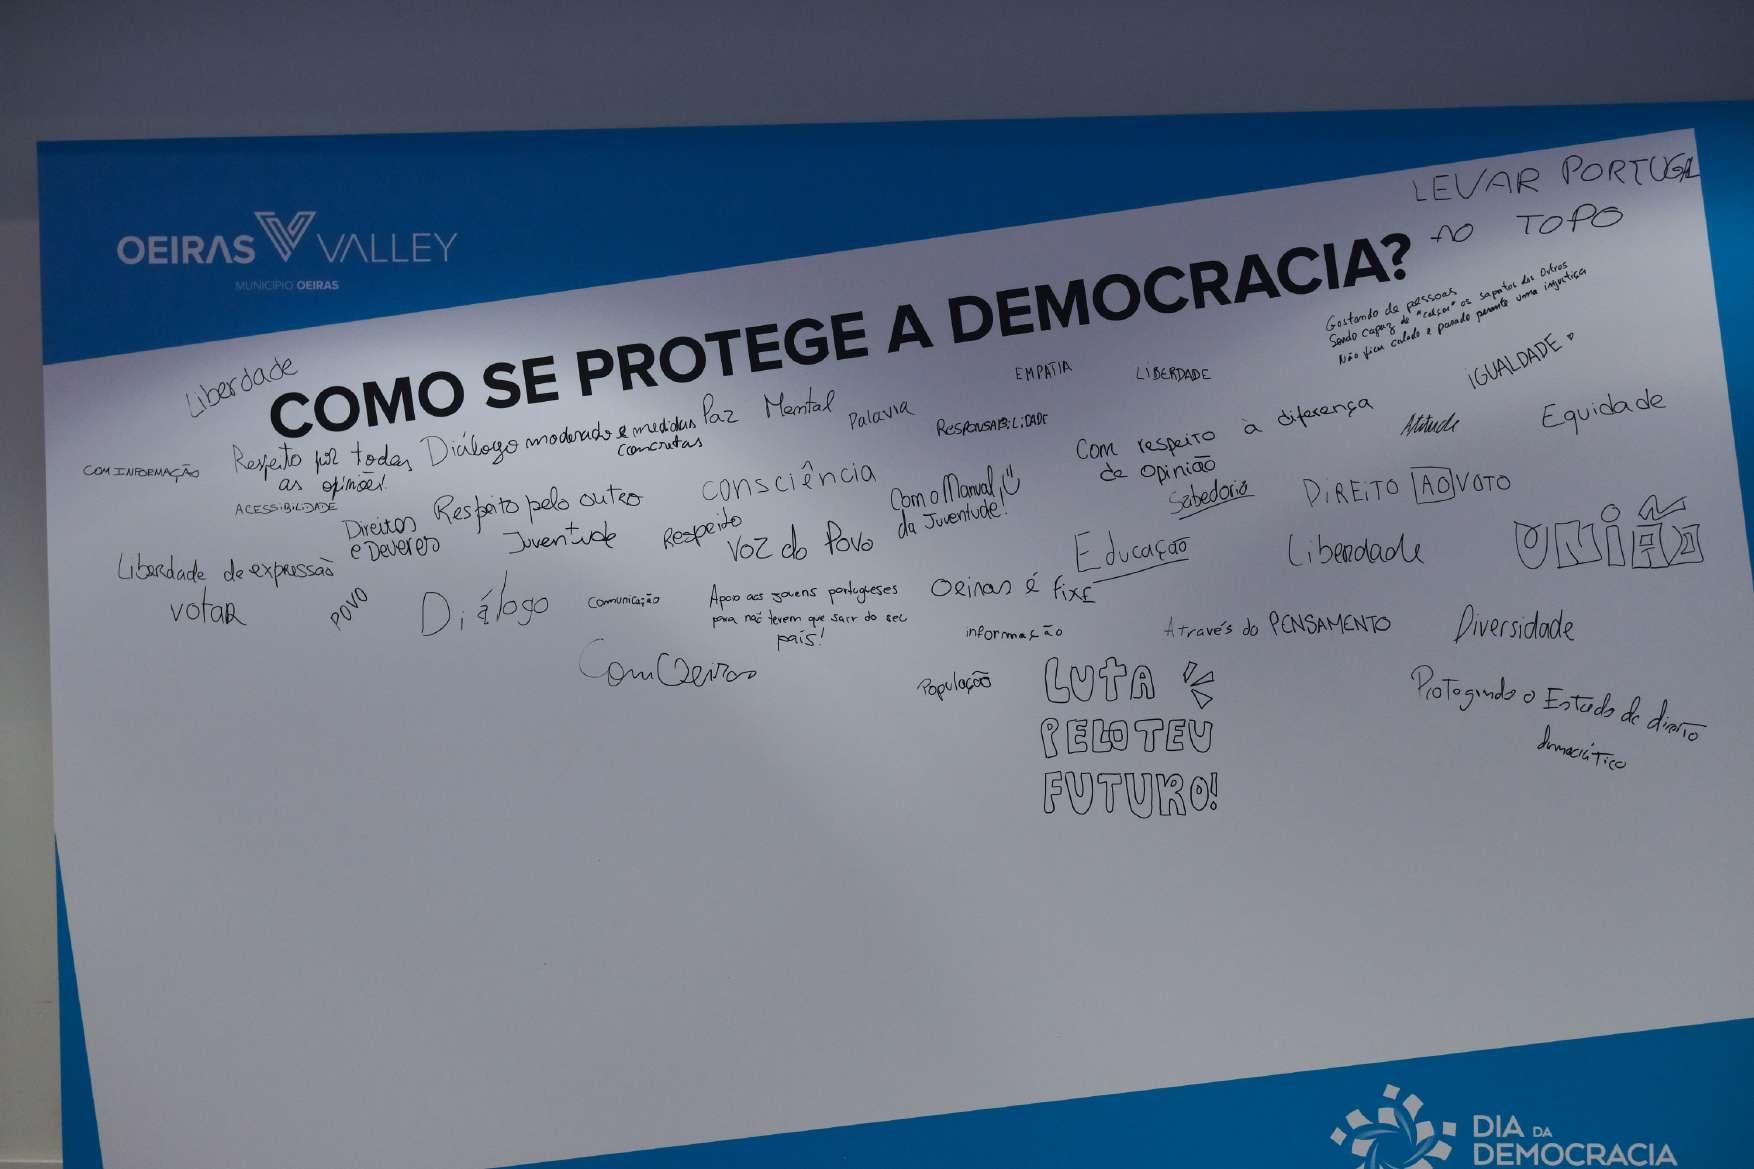 OEIRAS VALLEY
MUNICÍPIO OEIRAS
LEVAR PORTUGAL
AO TOPO
COMO SE PROTEGE A DEMOCRACIA?
Gostando de pessoas
Sendo capaz de "calçar" os sapatos dos outros
Não ficar calado e parado perante uma injustiça
Liberdade
EMPATIA
LIBERDADE
IGUALDADE
COM INFORMAÇÃO
Respeito por todas
as opiniões!
Diálogo moderado e medidas
concretas
Paz Mental
Palavra
RESPONSABILIDADE
Com respeito à diferença
de opinião
Atitude
Equidade
ACESSIBILIDADE
Direitos
e Deveres
Respeito pelo outro
Juventude
consciência
Respeito
Voz do Povo
Com o Manual
da Juventude!
Sabedoria
DIREITO AO VOTO
Liberdade de expressão
votar
POVO
Diálogo
comunicação
Apoio aos jovens portugueses
para não terem que sair do seu
país!
Oeiras é fixe
Educação
Liberdade
UNIÃO
informação
Através do PENSAMENTO
Diversidade
Com Oeiras
População
LUTA
PELO TEU
FUTURO!
Protegendo o Estado de direito
democrático
DIA DA
DEMOCRACIA